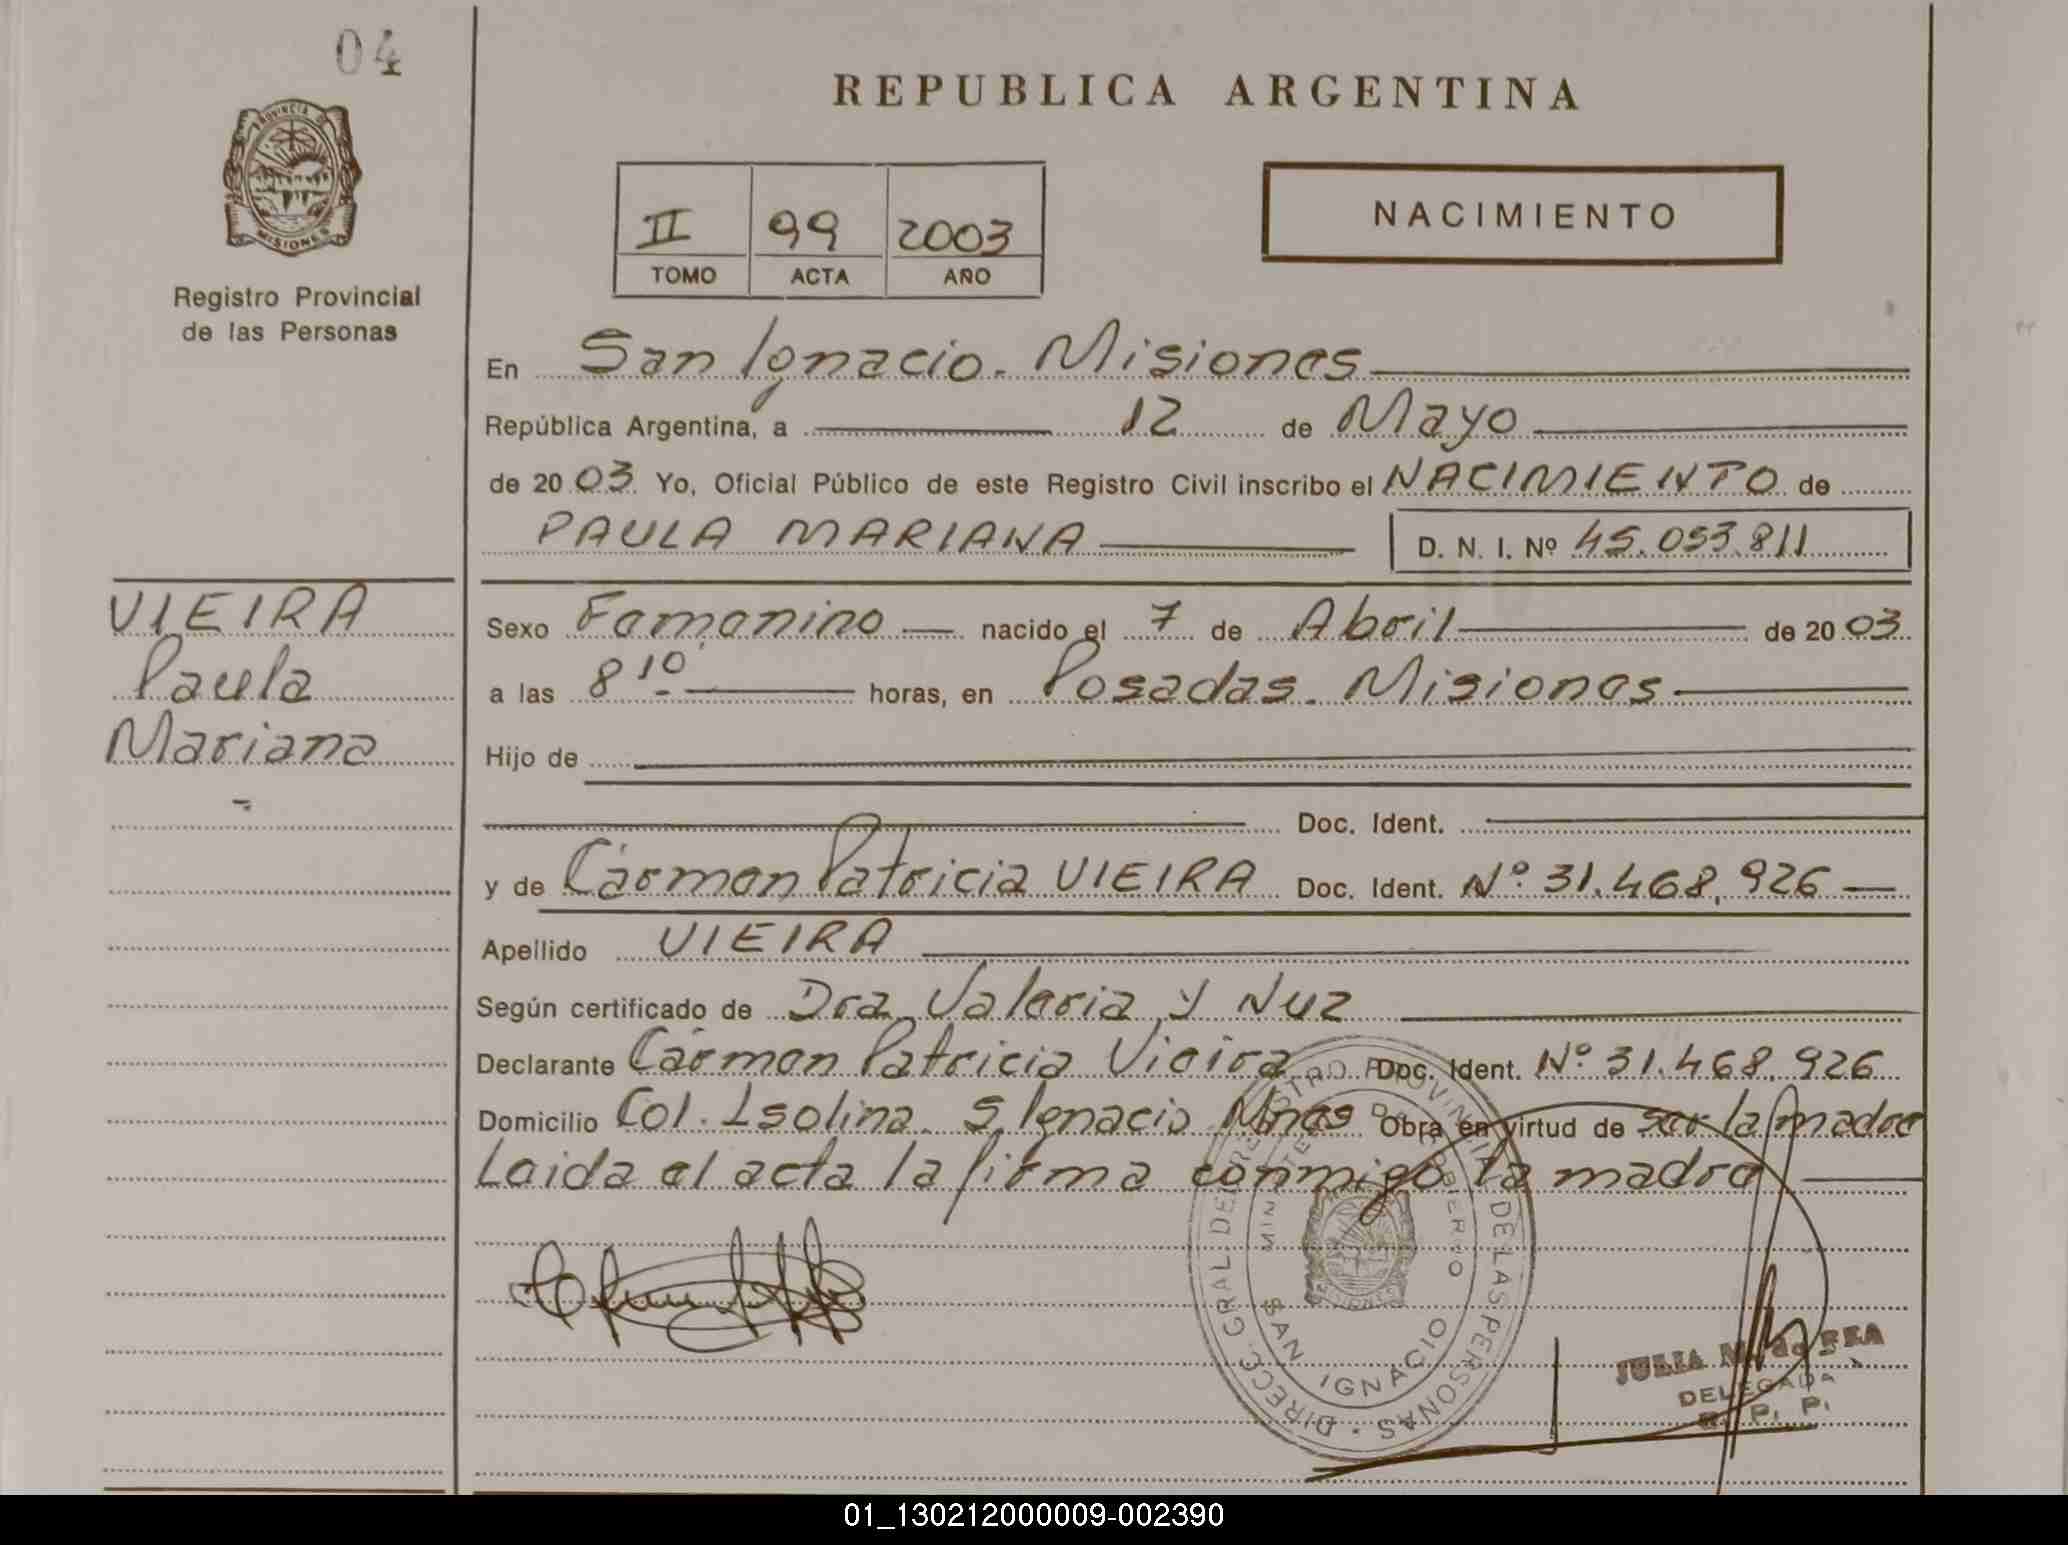 04
REPUBLICA ARGENTINA
PROVINCIA DE
MISIONES
Registro Provincial
de las Personas
II 99 2003
TOMO ACTA AÑO
NACIMIENTO
En San Ignacio. Misiones
República Argentina, a 12 de Mayo
de 2003 Yo, Oficial Público de este Registro Civil inscribo el NACIMIENTO de
PAULA MARIANA D. N. I. Nº 45.053.811
VIEIRA
Paula
Mariana
Sexo Femenino nacido el 7 de Abril de 2003
a las 8 10 horas, en Posadas. Misiones
Hijo de
Doc. Ident.
y de Carmen Patricia VIEIRA Doc. Ident. Nº 31.468.926
Apellido VIEIRA
Según certificado de Dra. Valeria Y Nuz
Declarante Carmen Patricia Vieira Doc. Ident. Nº 31.468.926
Domicilio Col. Isolina. S. Ignacio Mnes Obra en virtud de ser la madre
Leida el acta la firma conmigo la madre
DIRECC. GRAL DEL REGISTRO PROVINCIAL DE LAS PERSONAS
MINISTERIO DE GOBIERNO
SAN IGNACIO
JULIA M. de FEA
DELEGADA
R. P. P.
01_130212000009-002390